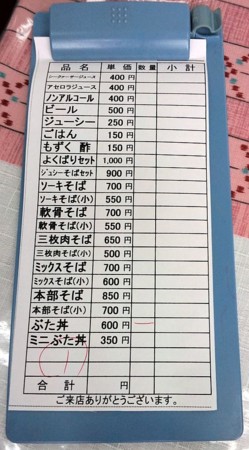 品名 単価 数量 小計
シークヮーサージュース 400 円
アセロラジュース 400 円
ノンアルコール 400 円
ビール 500 円
ジューシー 250 円
ごはん 150 円
もずく 酢 150 円
よくばりセット 1,000 円
ジュシーそばセット 900 円
ソーキそば 700 円
ソーキそば(小) 550 円
軟骨そば 700 円
軟骨そば(小) 550 円
三枚肉そば 650 円
三枚肉そば(小) 500 円
ミックスそば 700 円
ミックスそば(小) 600 円
本部そば 850 円
本部そば(小) 700 円
ぶた丼 600 円 一
ミニぶた丼 350 円
(1)
合計 円
ご来店ありがとうございます。